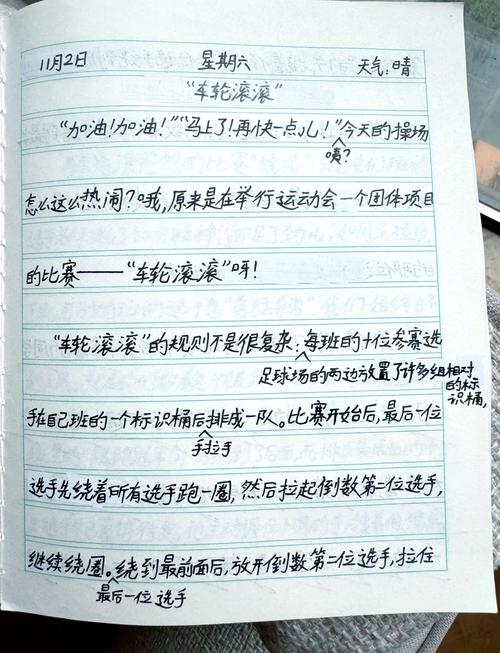 11月2日 星期六 天气:晴
“车轮滚滚”
“加油!加油!”“马上了!再快一点儿!”今天的操场
咦?
怎么这么热闹?哦,原来是在举行运动会一个团体项目
的比赛——“车轮滚滚”呀!
“车轮滚滚”的规则不是很复杂:每班的十位参赛选
足球场的两边放置了许多组相对
的标
识桶,
手在自己班的一个标识桶后排成一队。比赛开始后,最后一位
手拉手
选手先绕着所有选手跑一圈,然后拉起倒数第一位选手,
继续绕圈。绕到最前面后,放开倒数第二位选手,拉住
最后一位选手